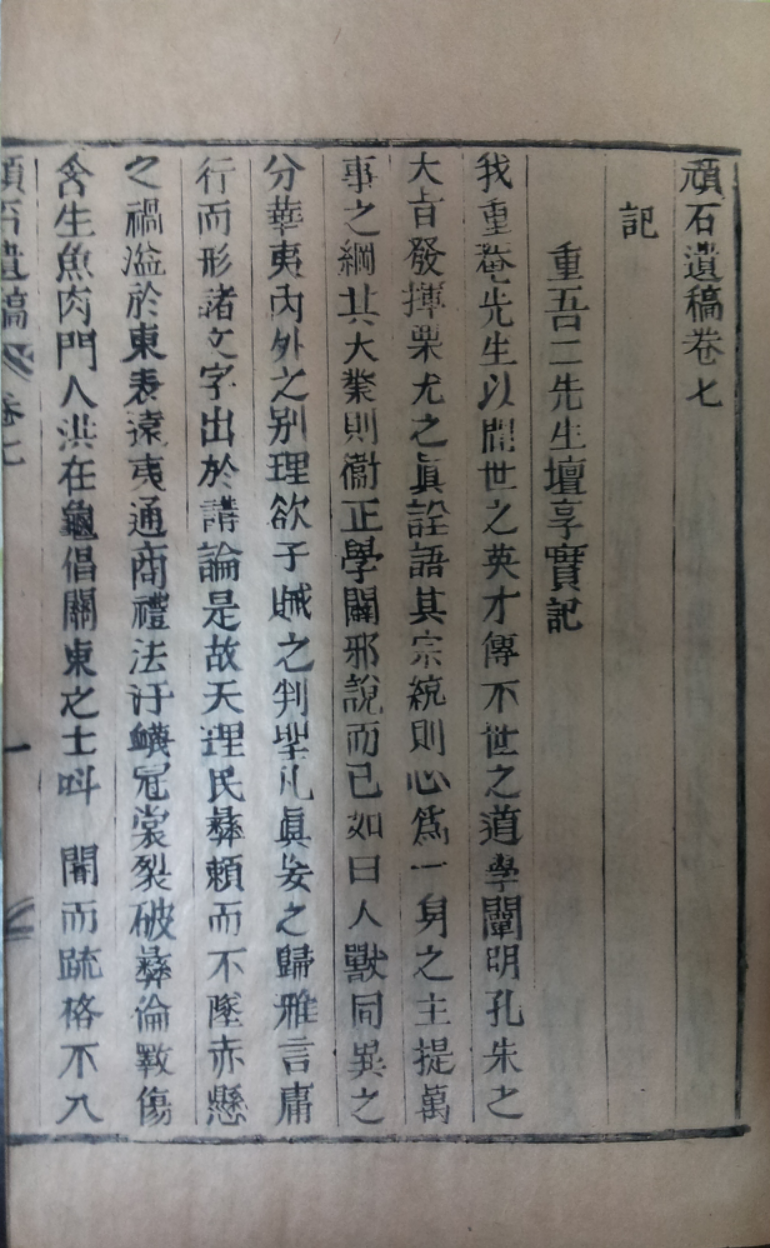 頑石遺稿卷七
記
重吾二先生壇享實記
我重菴先生以間世之英才傳不世之道學闡明孔朱之
大旨發揮栗尤之眞詮語其宗統則心爲一身之主提萬
事之綱其大業則衞正學闢邪說而已如曰人獸同異之
分華夷內外之别理欲子賊之判聖凡眞妄之歸雅言庸
行而形諸文字出於講論是故天理民彝賴而不墜赤懸
之禍溢於東表遠夷通商禮法汙衊冠裳裂破彝倫斁傷
含生魚肉門人洪在龜倡關東之士呌 閽而疏格不入
頑石遺稿 卷七 一